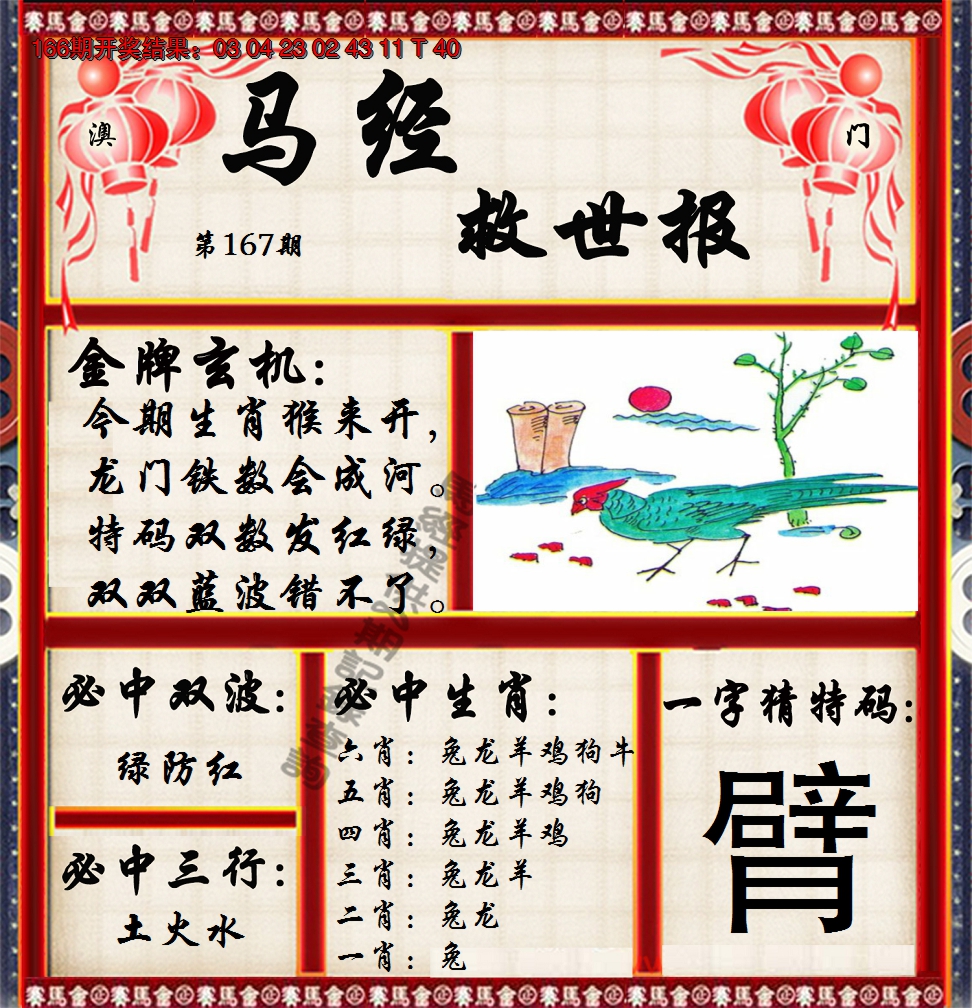 賽馬會
166期开奖结果：03 04 23 02 43 11 T 40
澳
门
马经
救世报
第167期
金牌玄机：
今期生肖猴来开，
龙门铁数会成河。
特码双数发红绿，
双双蓝波错不了。
必中双波：
绿防红
必中三行：
土火水
必中生肖：
六肖：兔龙羊鸡狗牛
五肖：兔龙羊鸡狗
四肖：兔龙羊鸡
三肖：兔龙羊
二肖：兔龙
一肖：兔
一字猜特码：
臂